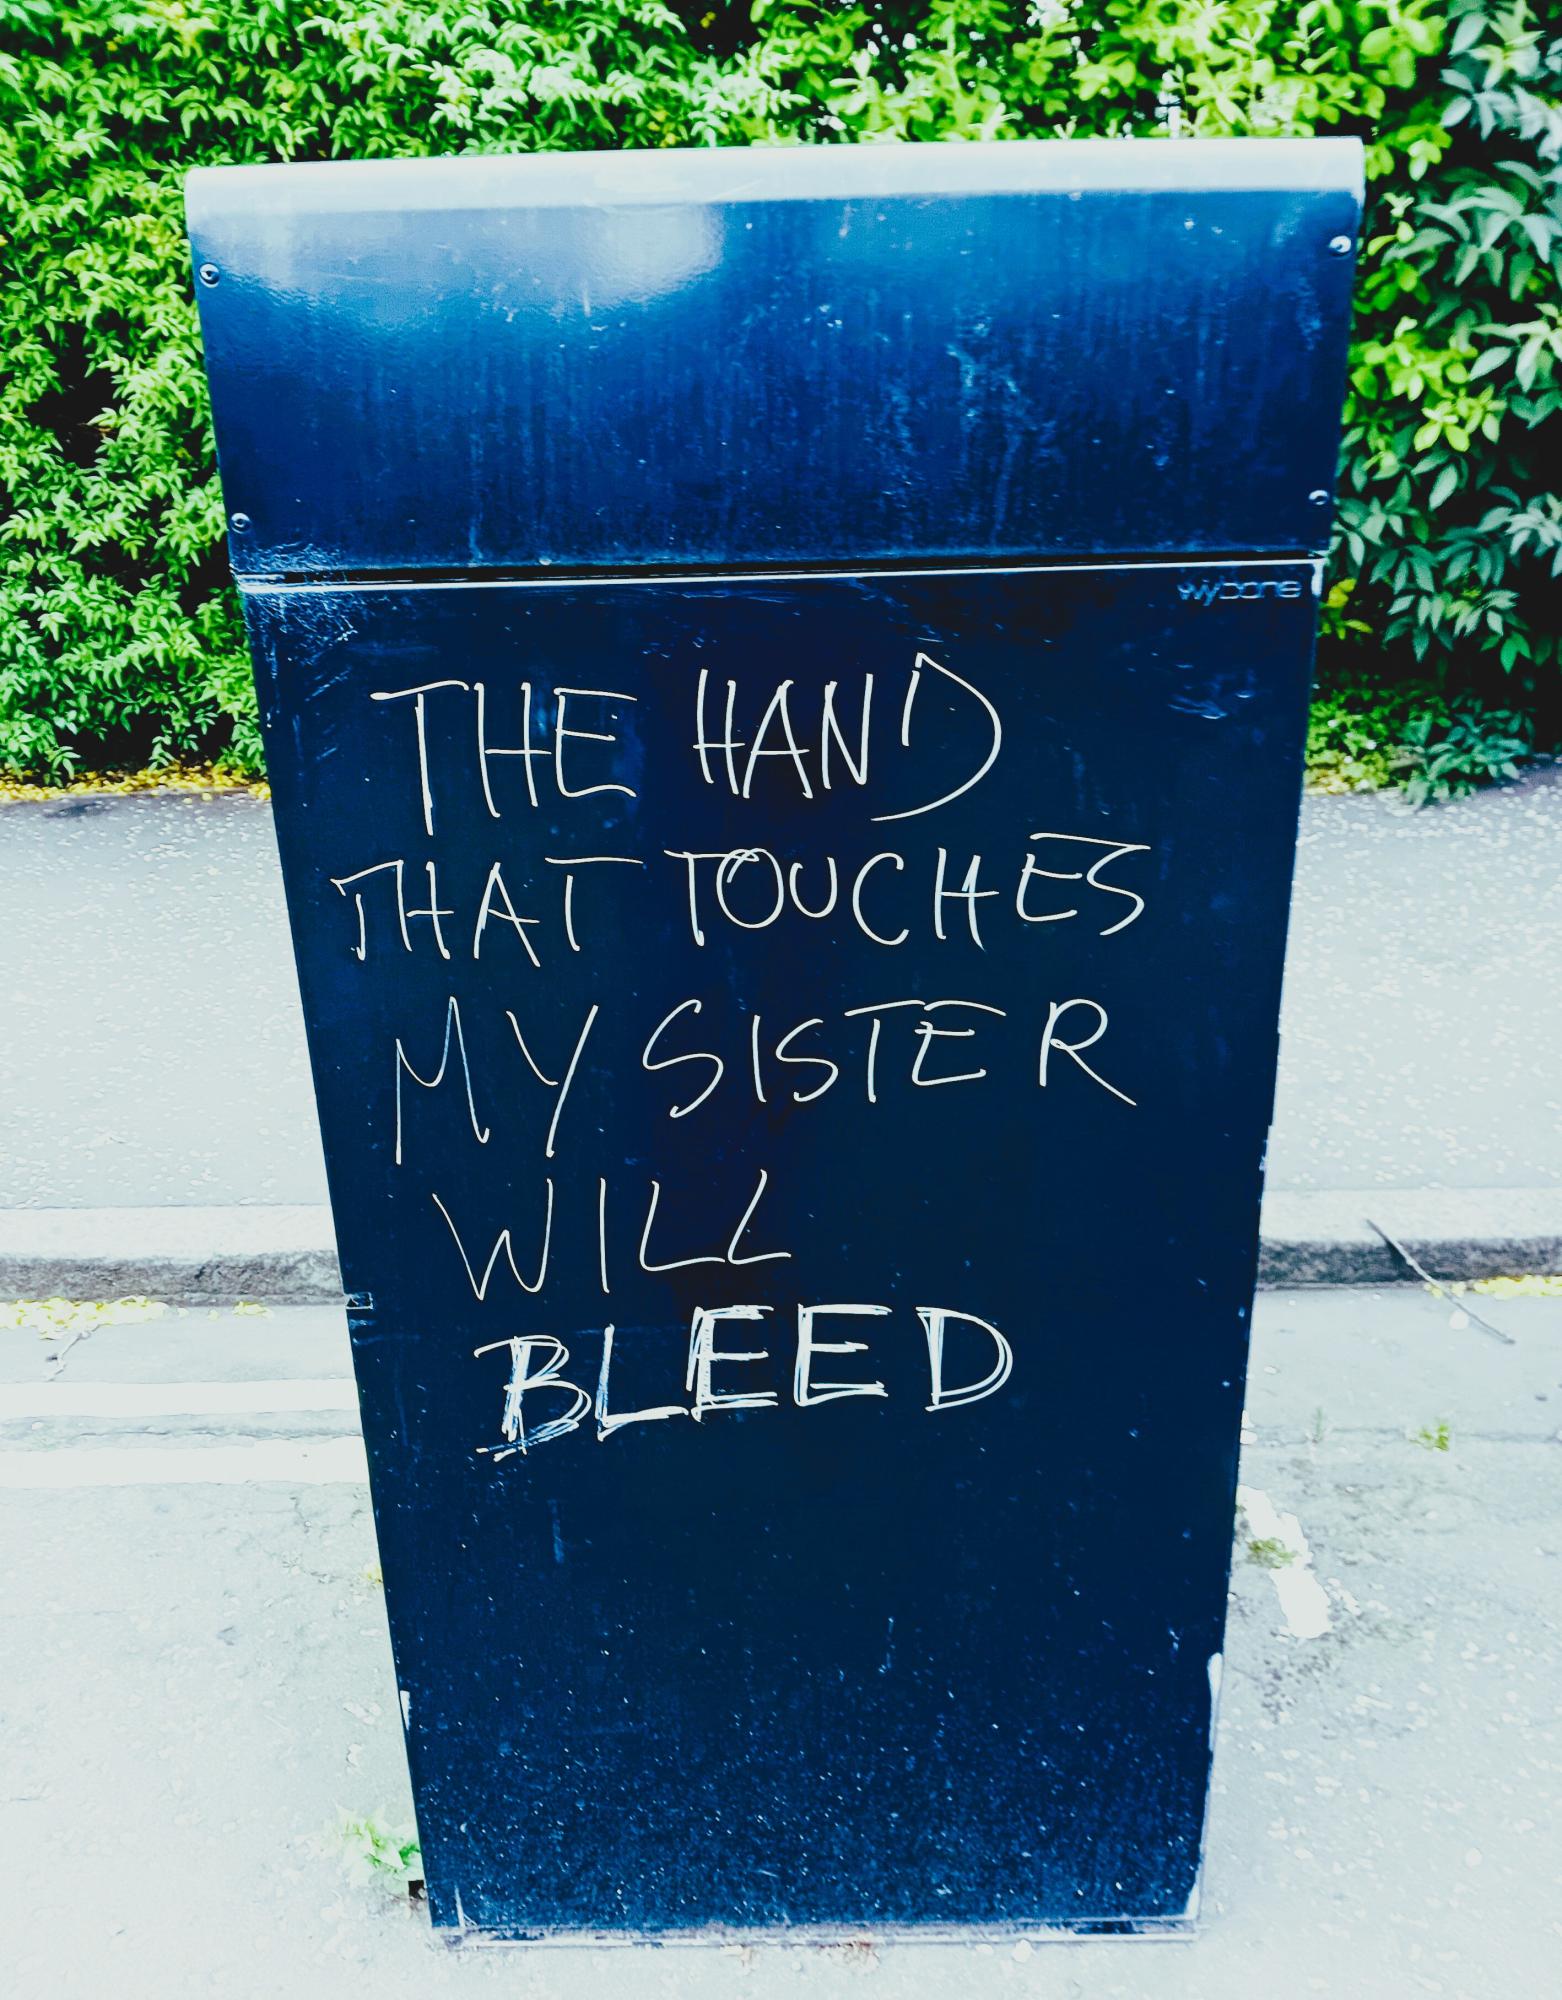 wybone
THE HAND
THAT TOUCHES
MY SISTER
WILL
BLEED